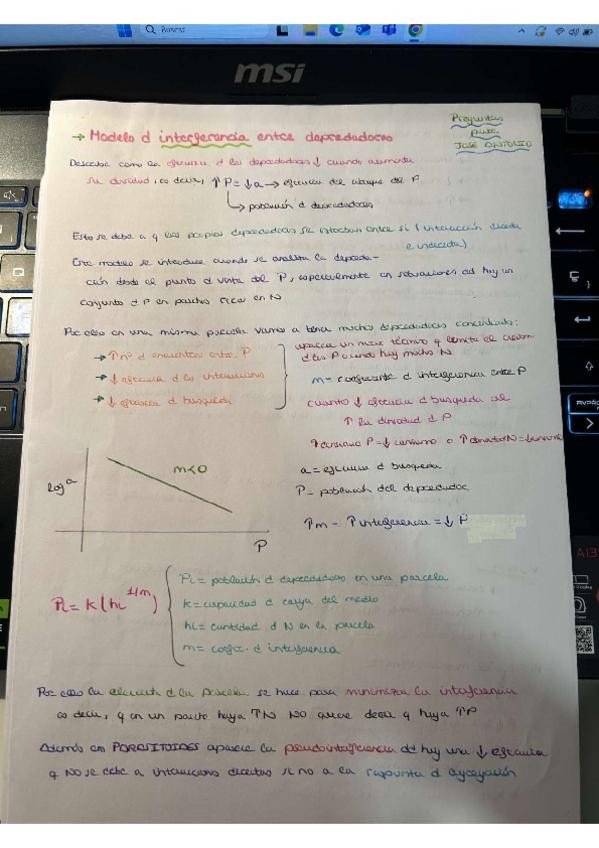 Buscar
msi
Preguntas
para
JOSE ANTONIO
→ Modelo d interferencia entre depredadores
Describe como la eficiencia d los depredadores ↓ cuando aumenta
su densidad, es decir, ↑P = ↓a → eficiencia del ataque del P.
↳ población d depredadores
Esto se debe a q los propios depredadores se interfieren entre sí (interacción directa
e indirecta)
Este modelo se introduce cuando se analiza la depreda-
ción desde el punto d vista del P, especialmente en situaciones dd hay un
conjunto d P en parches ricos en N
Por ello en una misma parcela vamos a tener muchos depredadores concentrados:
→ ↑ nº d encuentros entre P
→ ↓ eficiencia d las interacciones
→ ↓ eficacia d búsqueda
aparece un nuevo término q limita el
d los P cuando hay mucho N
m = coeficiente d interferencia entre P
cuanto ↓ eficiencia d búsqueda al
↑ la densidad d P
↑ consumo P = ↓ consumo o ↑ densidad N = ↓
a = eficiencia d búsqueda
P = población del depredador
↑m = ↑ interferencia = ↓ P
log a
m<0
P
Pi = K (hi^1/m)
Pi = población d depredadores en una parcela
K = capacidad d carga del medio
hi = cantidad d N en la parcela
m = coefic. d interferencia
Por ello la elección d la parcela se hace para minimizar la interferencia
es decir, q en un parche haya ↑N NO quiere decir q haya ↑P
Además en PARASITOIDES aparece la pseudointerferencia dd hay una ↓ eficacia
q NO se debe a interacciones directas si no a la respuesta d agregación